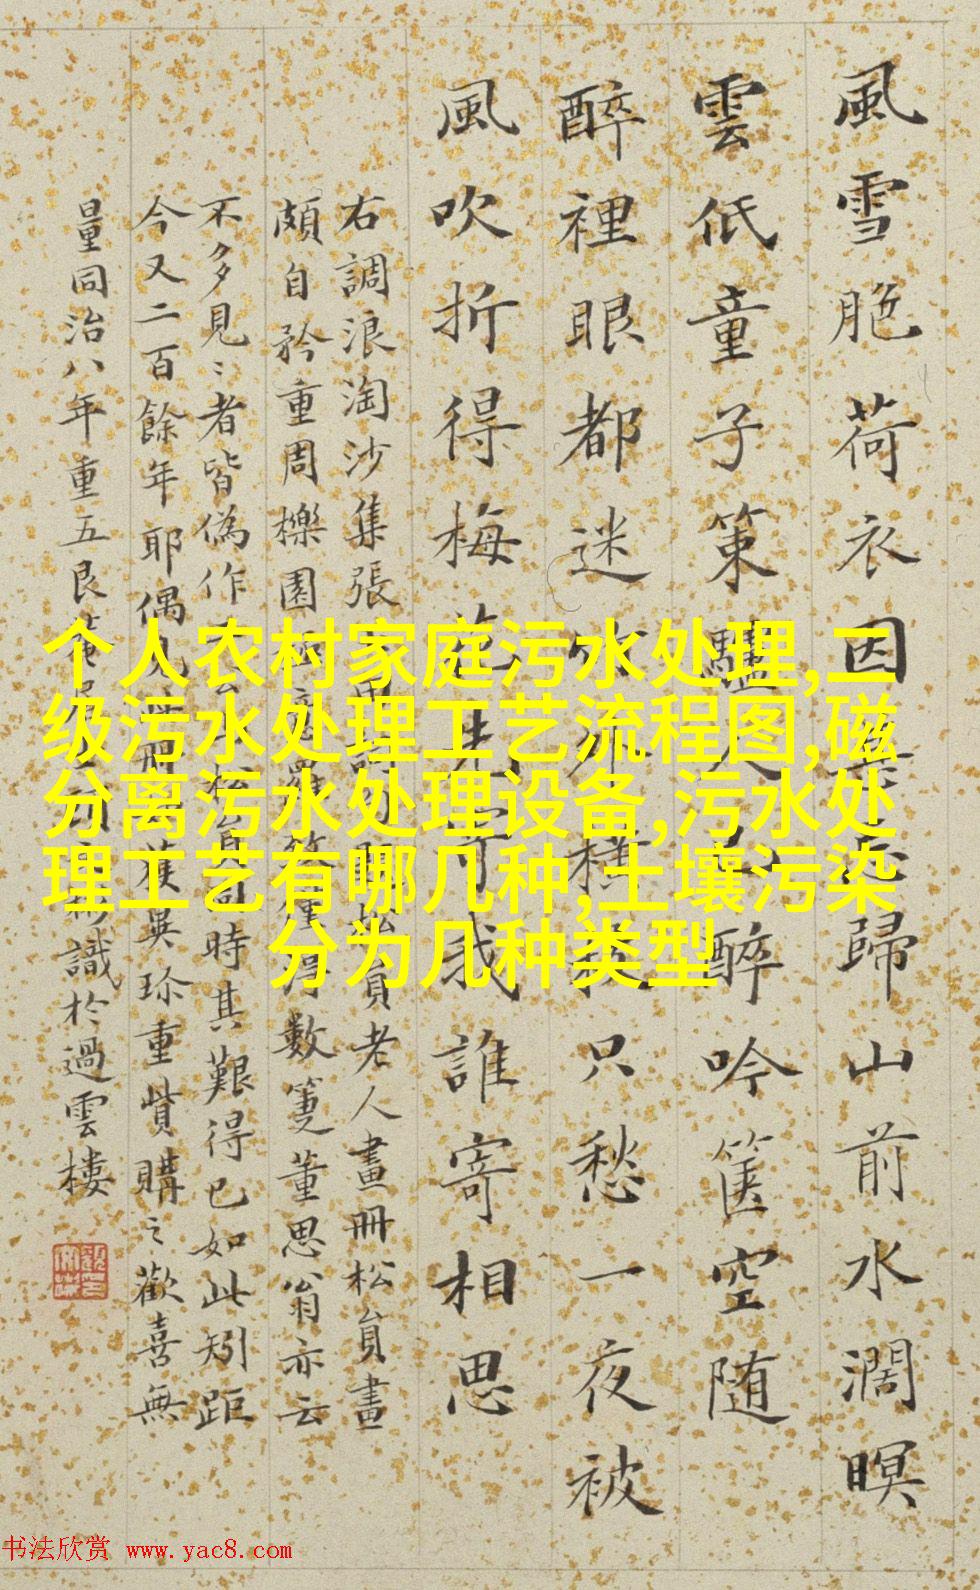 風雪脃荷衣因
歸山前水濶暝
雲低童子策驢
醉吟篋空随
醉裡眼都迷
只愁一夜被
風吹折得梅
我誰寄相思
右調浪淘沙集張
員老人畫冊松員畫
頗自矜重周櫟園
數筆董思翁亦云
不多見〻者皆偽作
時其艱得已如此矧距
今又二百餘年耶偶
珍重貲購之歡喜無
量同治八年重五艮菴
識於過雲樓
个人农村家庭污水处理,二
级污水处理工艺流程图,磁
分离污水处理设备,污水处
理工艺有哪几种,土壤污染
分为几种类型
书法欣赏 www.yac8.com